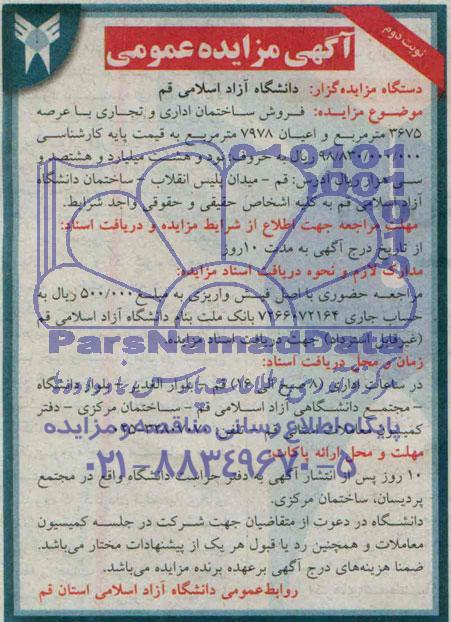 نوبت دوم
آگهی مزایده عمومی
دستگاه مزایده‌گزار: دانشگاه آزاد اسلامی قم
موضوع مزایده: فروش ساختمان اداری و تجاری با عرصه
۳۶۷۵ مترمربع و اعیان ۷۹۷۸ مترمربع به قیمت پایه کارشناسی
۹۸/۸۳۰/۰۰۰/۰۰۰ ریال به حروف: نود و هشت میلیارد و هشتصد و
سی هزار ریال آدرس: قم - میدان پلیس انقلاب - ساختمان دانشگاه
آزاد اسلامی قم به کلیه اشخاص حقیقی و حقوقی واجد شرایط.
مهلت مراجعه جهت اطلاع از شرایط مزایده و دریافت اسناد:
از تاریخ درج آگهی به مدت ۱۰ روز
مدارک لازم و نحوه دریافت اسناد مزایده:
مراجعه حضوری با اصل فیش واریزی به مبلغ ۵۰۰/۰۰۰ ریال به
حساب جاری ۷۲۶۶۰۷۲۱۶۴ بانک ملت بنام دانشگاه آزاد اسلامی قم
(غیرقابل استرداد) جهت دریافت اسناد مزایده
ParsNamadData
زمان و محل دریافت اسناد:
در ساعات اداری (۸ صبح الی ۱۶) قم - بلوار الغدیر - بلوار دانشگاه
- مجتمع دانشگاهی آزاد اسلامی قم - ساختمان مرکزی - دفتر
پایگاه اطلاع رسانی مناقصه و مزایده
مهلت و محل ارائه پاکات:
۰۲۱-۸۸۳۴۹۶۷۰-۵
۱۰ روز پس از انتشار آگهی به دفتر حراست دانشگاه واقع در مجتمع
پردیسان، ساختمان مرکزی.
دانشگاه در دعوت از متقاضیان جهت شرکت در جلسه کمیسیون
معاملات و همچنین رد یا قبول هر یک از پیشنهادات مختار می‌باشد.
ضمنا هزینه‌های درج آگهی برعهده برنده مزایده می‌باشد.
روابط‌عمومی دانشگاه آزاد اسلامی استان قم